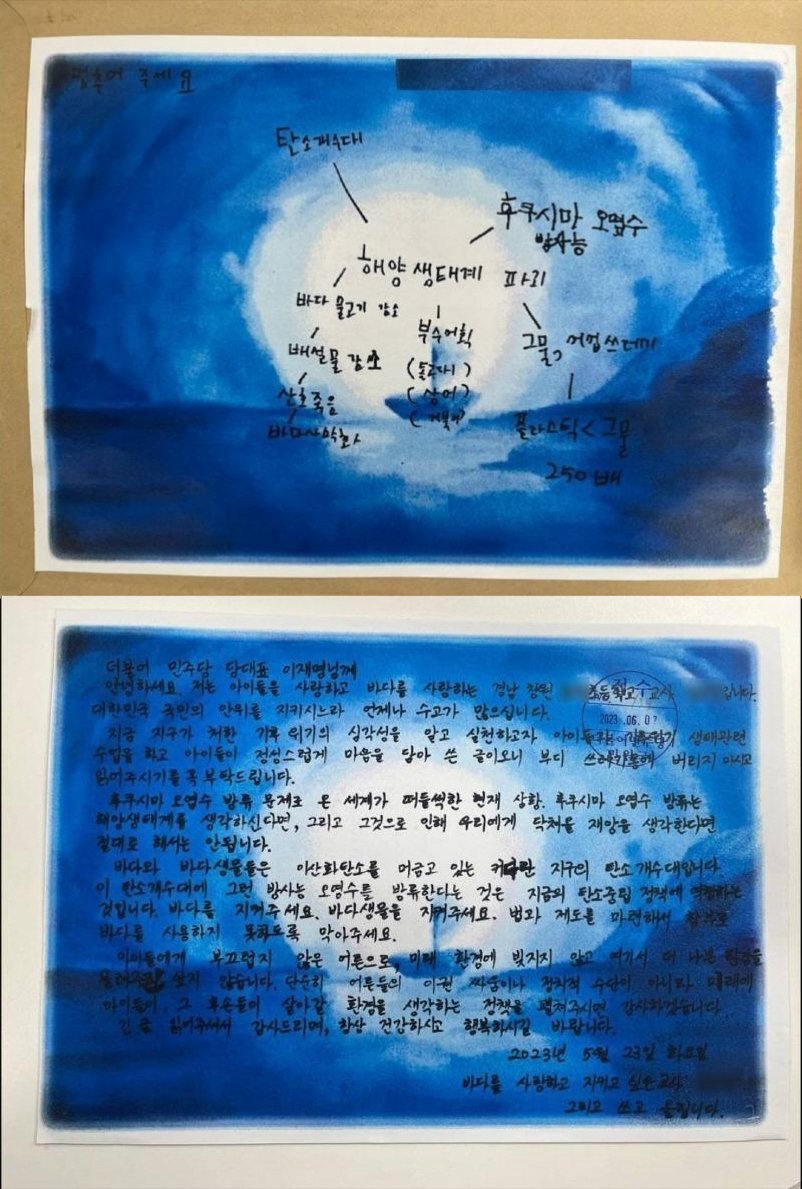 멈추어 주세요
탄소개수대
후쿠시마 오염수
방사능
해양 생태계 파리
바다 물고기 감소
배설물 감소
산호 죽음
바다사막화
부수어획
(돌고래)
(상어)
(거북이)
그물, 어업쓰레기
플라스틱 < 그물
250배
더불어 민주당 당대표 이재명님께
안녕하세요 저는 아이들을 사랑하고 바다를 사랑하는 경남 창원 초등학교 수교사 입니다.
대한민국 국민의 안위를 지키시느라 언제나 수고가 많으십니다.
2023. 06. 0?
지금 지구가 처한 기후위기의 심각성을 알고 실천하고자 아이들과 생태관련
수업을 하고 아이들이 정성스럽게 마음을 담아 쓴 글이오니 부디 쓰레기통에 버리지 마시고
읽어주시기를 꼭 부탁드립니다.
후쿠시마 오염수 방류 문제로 온 세계가 떠들썩한 현재 상황. 후쿠시마 오염수 방류는
해양생태계를 생각하신다면, 그리고 그것으로 인해 우리에게 닥쳐올 재앙을 생각한다면
절대로 해서는 안됩니다.
바다와 바다생물들은 이산화탄소를 머금고 있는 커다란 지구의 탄소개수대입니다
이 탄소개수대에 그런 방사능 오염수를 방류한다는 것은 지금의 탄소중립 정책에 역행하는
것입니다. 바다를 지켜주세요. 바다생물을 지켜주세요. 법과 제도를 마련해서 함부로
바다를 사용하지 못하도록 막아주세요.
아이들에게 부끄럽지 않은 어른으로, 미래 환경에 빚지지 않고 여기서 더 나쁜 환경을
물려주고 싶지 않습니다. 단순히 어른들의 이권 싸움이나 정치적 수단이 아니라 미래에
아이들이, 그 후손들이 살아갈 환경을 생각하는 정책을 펼쳐주시면 감사하겠습니다.
긴 글 읽어주셔서 감사드리며, 항상 건강하시고 행복하시길 바랍니다.
2023년 5월 23일 화요일
바다를 사랑하고 지키고 싶은 교사
그리고 쓰고 올립니다.